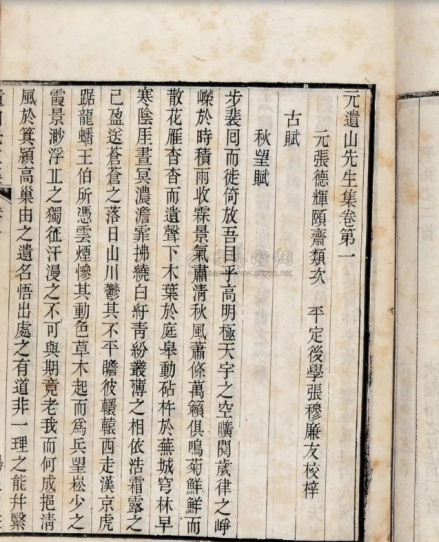 元遺山先生集卷第一
元張德輝頤齋類次 平定後學張穆廉友校梓
古賦
秋望賦
步裴回而徙倚放吾目乎高明極天宇之空曠閱歲律之崢
嶸於時積雨收霖景氣肅清秋風蕭條萬籟俱鳴菊鮮鮮而
散花雁杳杳而遺聲下木葉於庭皋動砧杵於蕪城穹林早
寒陰厓晝冥濃澹霏拂繞白紆青紛叢薄之相依浩霜露之
已盈送蒼蒼之落日山川鬱其不平瞻彼轘轅西走漢京虎
踞龍蟠王伯所憑雲煙慘其動色草木起而爲兵望崧少之
霞景渺浮丘之獨征汗漫之不可與期竟老我而何成挹清
風於箕潁高巢由之遺名悟出處之有道非一理之能幷繄